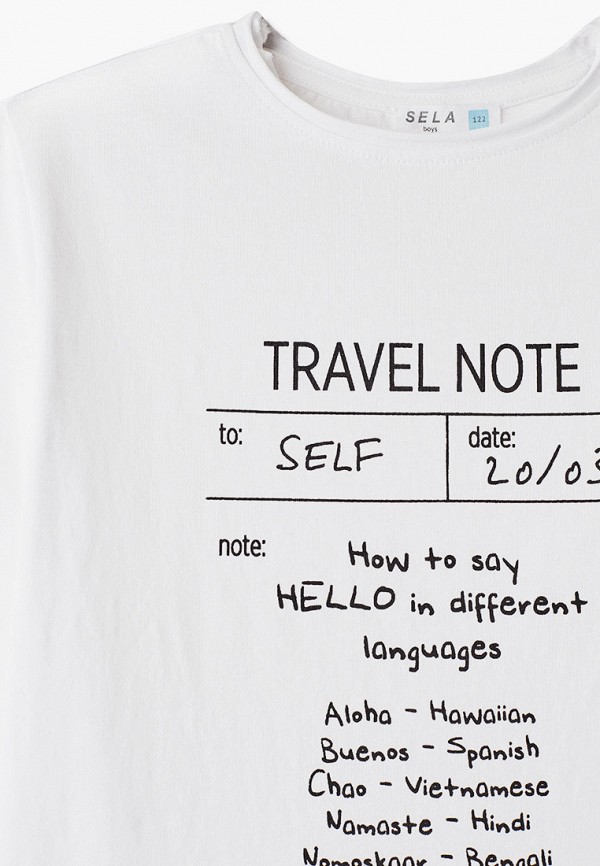 SELA 122
boys
TRAVEL NOTE
to: SELF date: 20/03
note: How to say
HELLO in different
languages
Aloha - Hawaiian
Buenos - Spanish
Chao - Vietnamese
Namaste - Hindi
Nomoskaar - Bengali